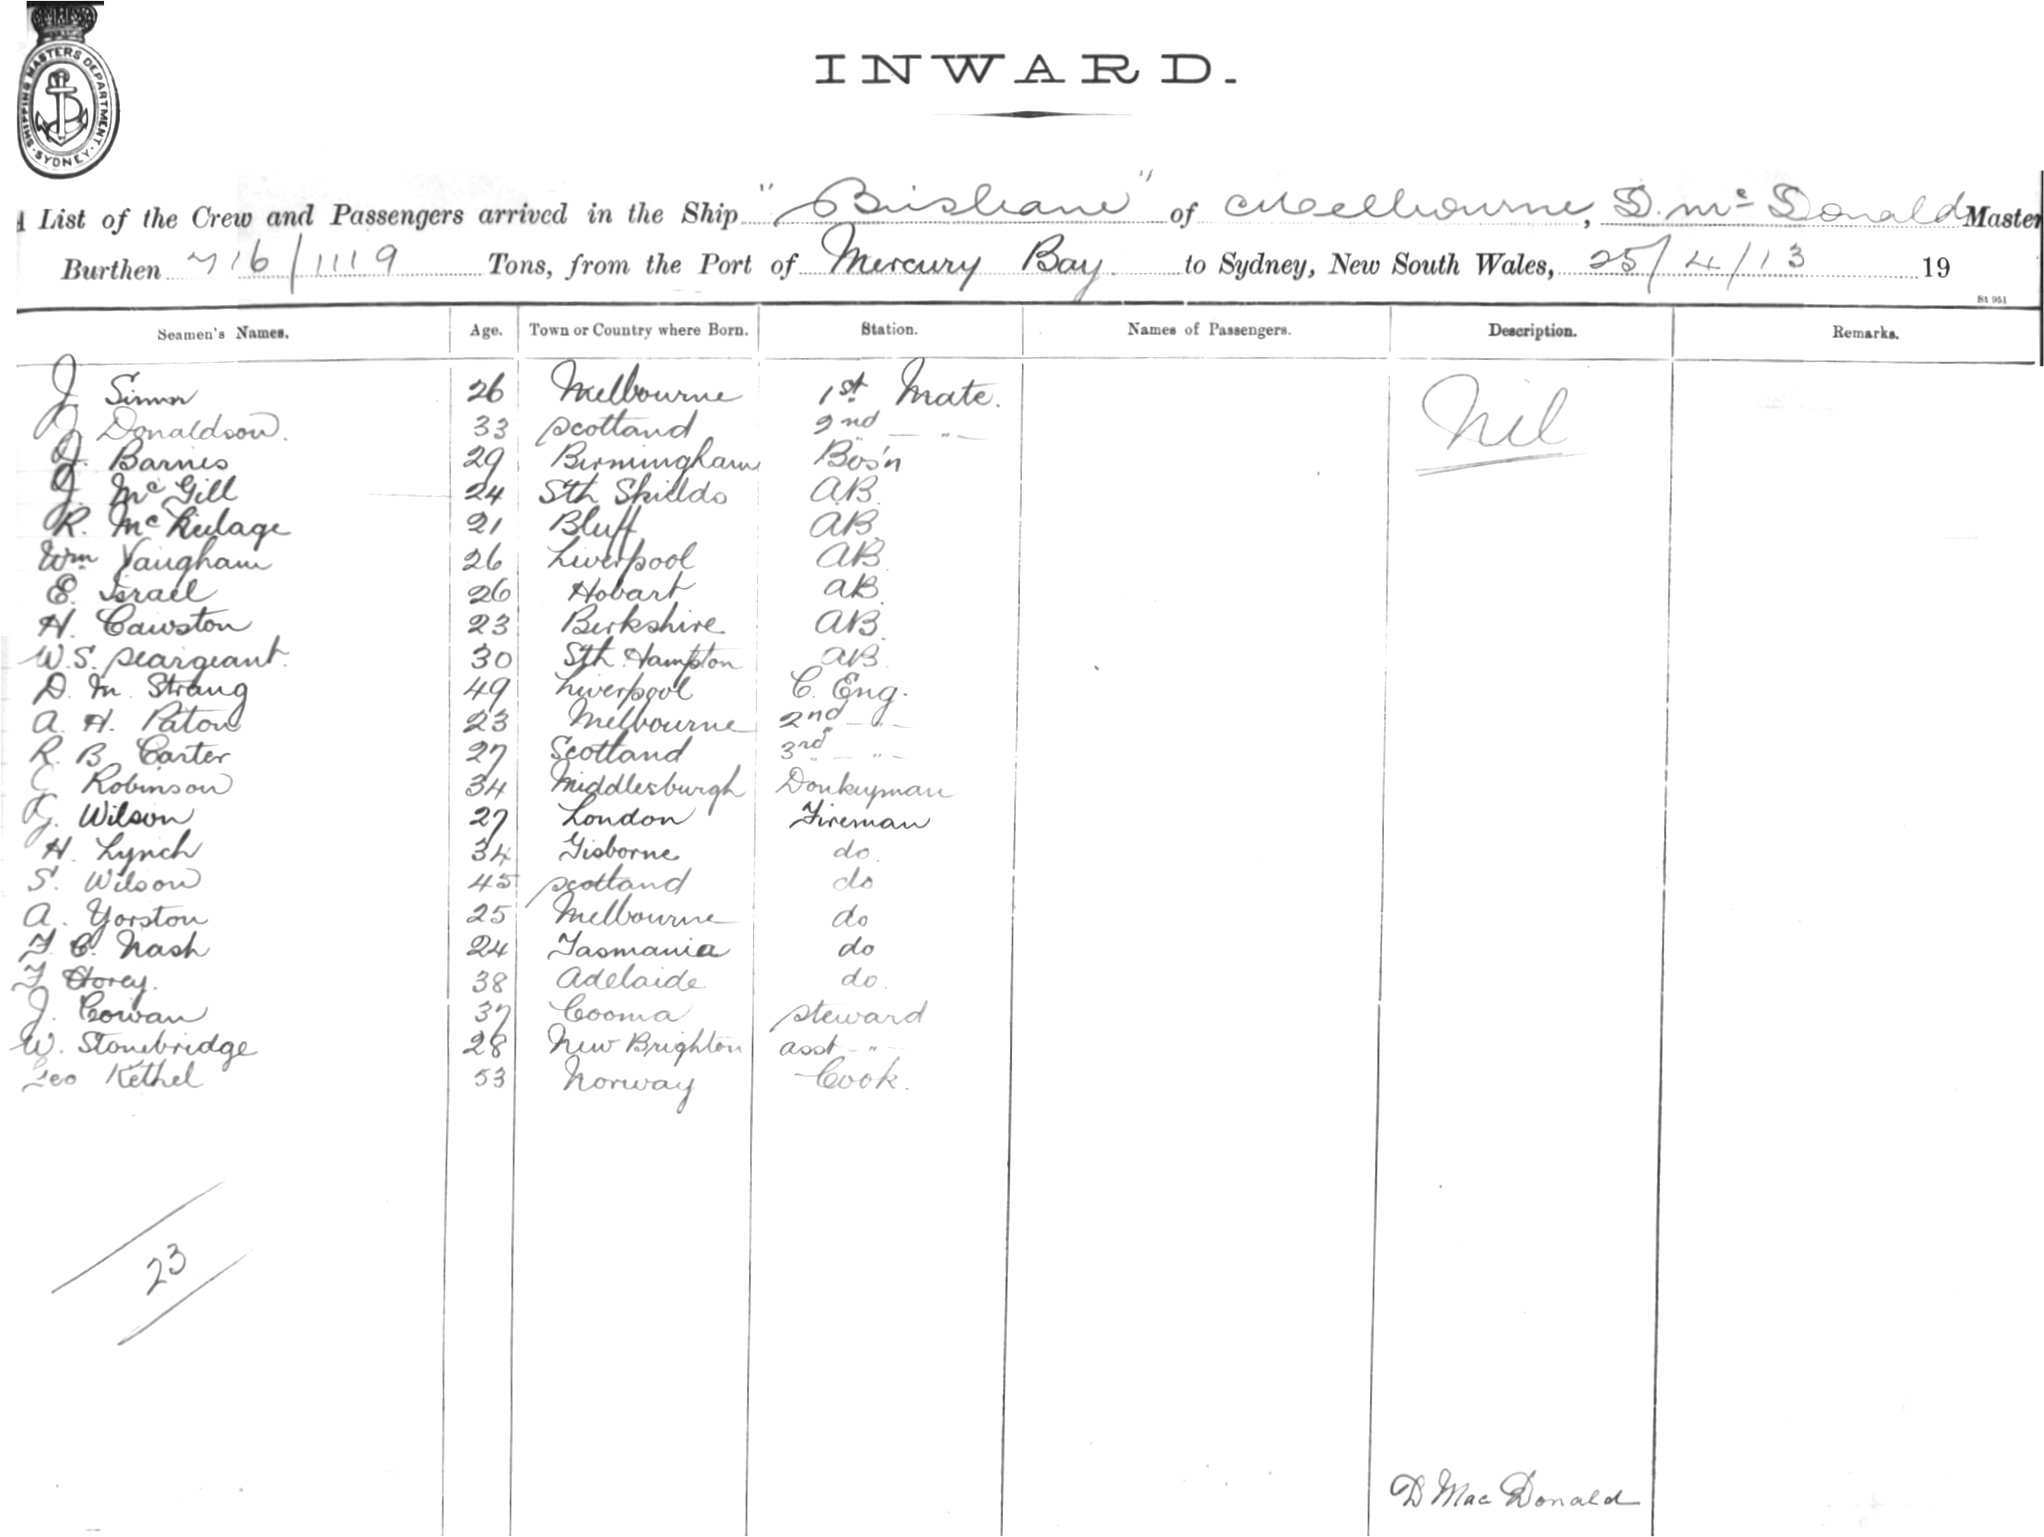 SHIPPING MASTERS DEPARTMENT. SYDNEY.
INWARD.
List of the Crew and Passengers arrived in the Ship "Brisbane" of Melbourne, D. Mc Donald Master
Burthen 716/1119 Tons, from the Port of Mercury Bay to Sydney, New South Wales, 25/4/13 19
St 951
Seamen's Names. Age. Town or Country where Born. Station. Names of Passengers. Description. Remarks.
J. Simnor 26 Melbourne 1st Mate. Nil
Donaldson. 33 Scotland 2nd — " —
J. Barnes 29 Birmingham Bos'n
J. Mc Gill 24 Sth Shields AB.
R. Mc 21 Bluff AB.
Wm Vaugham 26 Liverpool AB.
E. Israel 26 Hobart AB.
H. Cawston 23 Berkshire AB.
W.S. Seargeant. 30 Sth Hampton AB.
D. M. Strang 49 Liverpool C. Eng.
A. H. Paton 23 Melbourne 2nd — " —
R. B. Carter 27 Scotland 3rd — " —
C Robinson 34 Middlesburgh Donkeyman
G. Wilson 27 London Fireman
H. Lynch 34 Gisborne do.
S. Wilson 45 Scotland do
A. Yorston 25 Melbourne do
F. C. Nash 24 Tasmania do
F Storey. 38 Adelaide do.
J. Cowan 37 Cooma Steward
W. Stonebridge 28 New Brighton asst — " —
Geo Kethel 53 Norway Cook.
23
D Mac Donald